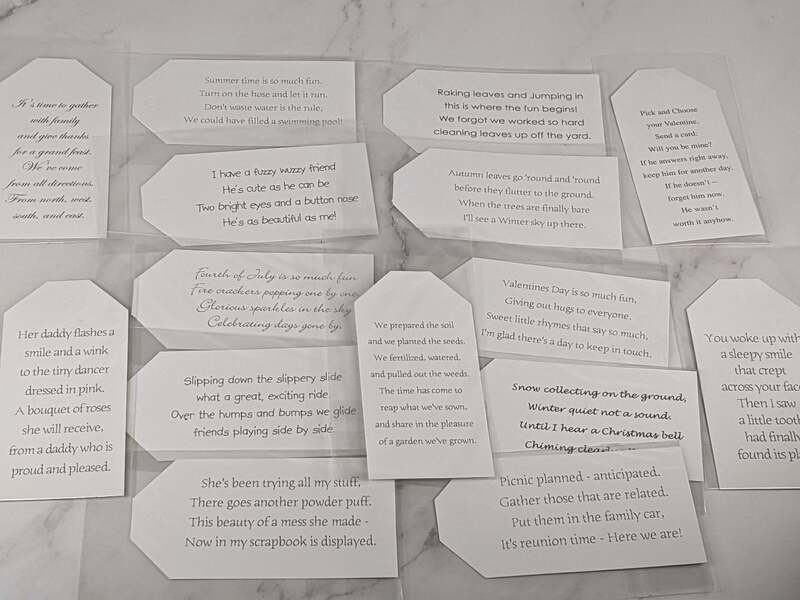 It's time to gather
with family
and give thanks
for a grand feast.
We've come
from all directions,
From north, west,
south, and east.
Summer time is so much fun.
Turn on the hose and let it run.
Don't waste water is the rule,
We could have filled a swimming pool!
Raking leaves and Jumping in
this is where the fun begins!
We forgot we worked so hard
cleaning leaves up off the yard.
Pick and Choose
your Valentine,
Send a card:
Will you be mine?
If he answers right away,
keep him for another day.
If he doesn't —
forget him now.
He wasn't
worth it anyhow.
I have a fuzzy wuzzy friend
He's cute as he can be
Two bright eyes and a button nose
He's as beautiful as me!
Autumn leaves go 'round and 'round
before they flutter to the ground.
When the trees are finally bare
I'll see a Winter sky up there.
Fourth of July is so much fun
Fire crackers popping one by one
Glorious sparkles in the sky
Celebrating days gone by.
Valentines Day is so much fun,
Giving out hugs to everyone.
Sweet little rhymes that say so much,
I'm glad there's a day to keep in touch.
Her daddy flashes a
smile and a wink
to the tiny dancer
dressed in pink.
A bouquet of roses
she will receive,
from a daddy who is
proud and pleased.
We prepared the soil
and we planted the seeds.
We fertilized, watered,
and pulled out the weeds.
The time has come to
reap what we've sown,
and share in the pleasure
of a garden we've grown.
You woke up with
a sleepy smile
that crept
across your face
Then I saw
a little tooth
had finally
found its
Slipping down the slippery slide
what a great, exciting ride.
Over the humps and bumps we glide
friends playing side by side.
Snow collecting on the ground,
Winter quiet not a sound.
Until I hear a Christmas bell
Chiming
She's been trying all my stuff,
There goes another powder puff.
This beauty of a mess she made -
Now in my scrapbook is displayed.
Picnic planned - anticipated.
Gather those that are related.
Put them in the family car,
It's reunion time - Here we are!